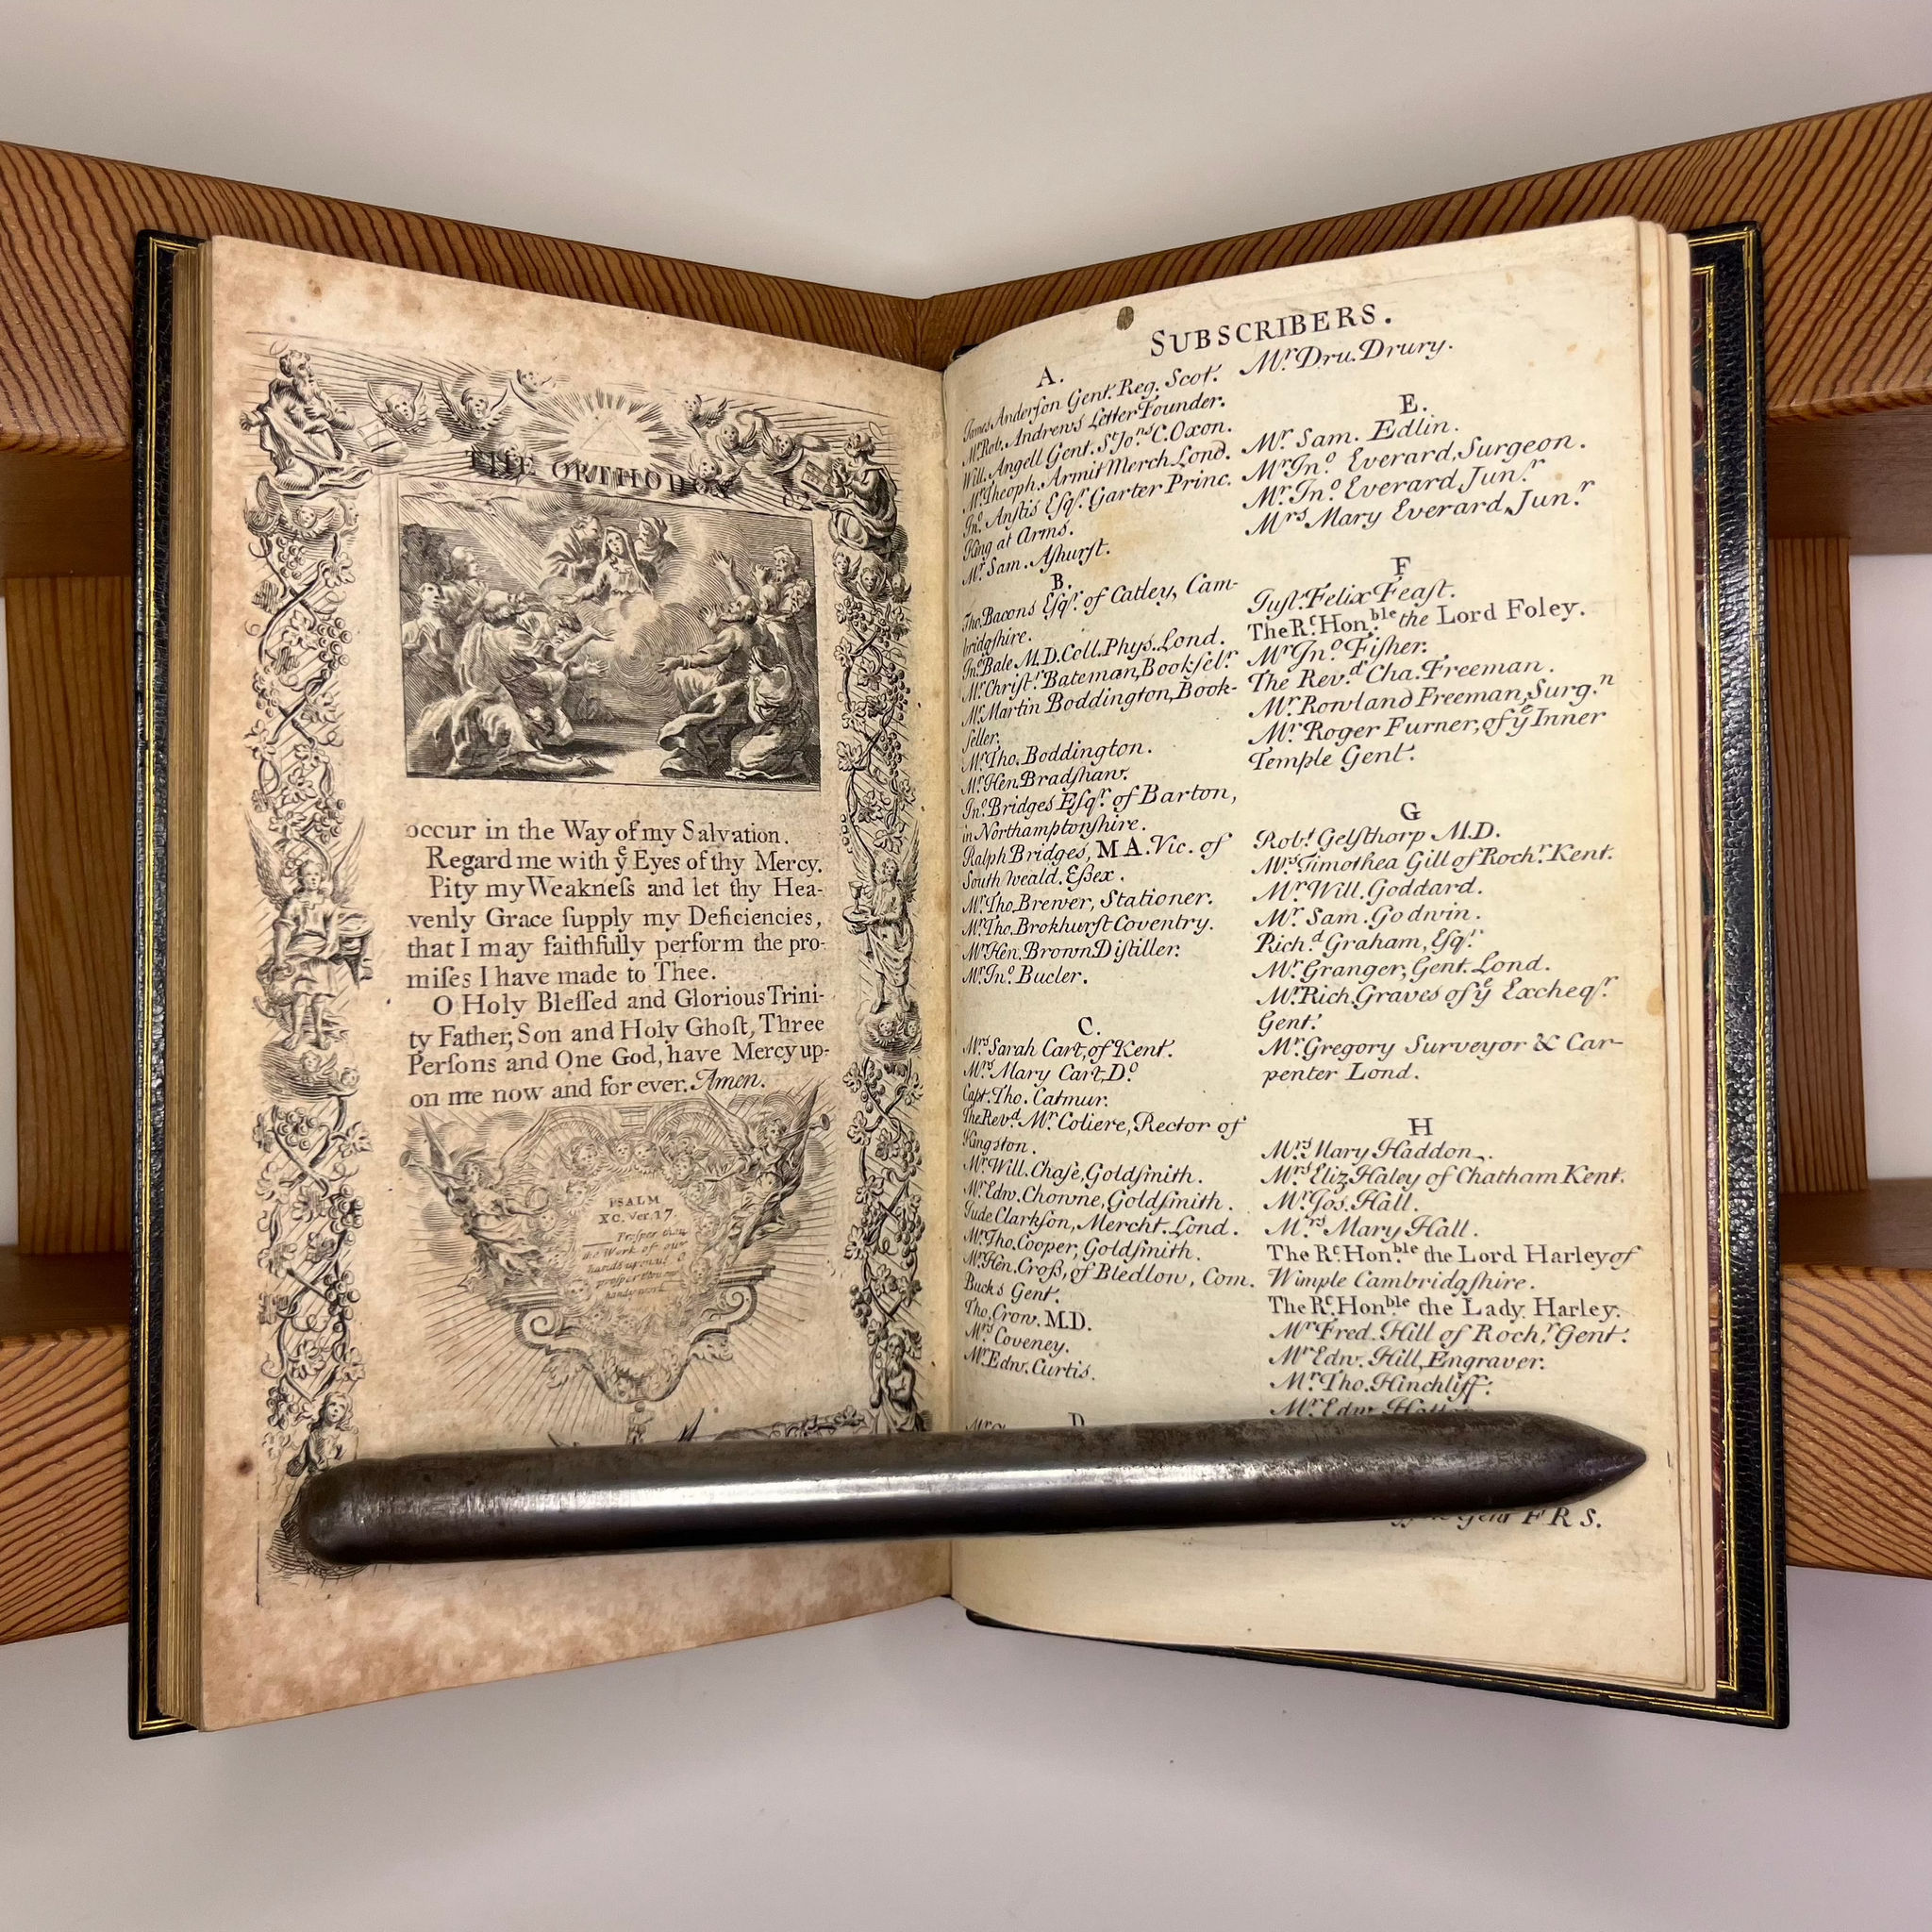 THE ORTHODOX
82
occur in the Way of my Salvation.
Regard me with yͤ Eyes of thy Mercy.
Pity my Weakneſs and let thy Hea-
venly Grace ſupply my Deficiencies,
that I may faithfully perform the pro-
miſes I have made to Thee.
O Holy Bleſſed and Glorious Trini-
ty Father, Son and Holy Ghoſt, Three
Perſons and One God, have Mercy up-
on me now and for ever. Amen.
PSALM
XC. Ver. 17.
Proſper thou
the Work of our
hands upon us O
proſper thou our
handy work
SUBSCRIBERS.
A.
James Anderſon Gent. Reg. Scot.
Mr. Rob. Andrews Letter Founder.
Will. Angell Gent. St. Jo.ns C. Oxon.
Mr. Theoph. Armit Merch Lond.
Jn.o Anſtis Eſqr. Garter Princ.
King at Arms.
Mr. Sam. Aſhurſt.
B.
Tho. Bacons Eſqr. of Catley, Cam-
bridgſhire.
Jn.o Bale M.D. Coll. Phys. Lond.
Mr. Chriſt.r Bateman, Bookſelr.
Mr. Martin Boddington, Book-
ſeller.
Mr. Tho. Boddington.
Mr. Hen. Bradſhaw.
Jn.o Bridges Eſqr. of Barton,
in Northamptonſhire.
Ralph Bridges, MA. Vic. of
South Weald. Eßex.
Mr. Tho. Brewer, Stationer.
Mr. Tho. Brokhurſt Coventry.
Mr. Hen. Brown Diſtiller.
Mr. Jn.o Bucler.
C.
Mrs. Sarah Cart, of Kent.
Mrs. Mary Cart, D.o
Capt. Tho. Catmur.
The Revd. Mr. Coliere, Rector of
Kingston.
Mr. Will. Chaſe, Goldſmith.
Mr. Edw. Chowne, Goldſmith.
Jude Clarkſon, Mercht. Lond.
Mr. Tho. Cooper, Goldſmith.
Mr. Hen. Croß, of Bledlow, Com.
Bucks Gent.
Tho. Crow. M.D.
Mrs. Coveney.
Mr. Edw. Curtis.
D.
Mr. Dru. Drury.
E.
Mr. Sam. Edlin.
Mr. Jn.o Everard, Surgeon.
Mr. Jn.o Everard, Jun.r
Mrs. Mary Everard, Jun.r
F
Juſt. Felix Feaſt.
The Rt. Hon.ble the Lord Foley.
Mr. Jn.o Fiſher.
The Rev.d Cha. Freeman.
Mr. Rowland Freeman, Surg.n
Mr. Roger Furner, of yͤ Inner
Temple Gent.
G
Robt. Gelſthorp M.D.
Mrs. Timothea Gill of Roch.r Kent.
Mr. Will. Goddard.
Mr. Sam. Godwin.
Rich.d Graham, Eſqr.
Mr. Granger, Gent. Lond.
Mr. Rich. Graves of yͤ Excheqr.
Gent.
Mr. Gregory Surveyor & Car-
penter Lond.
H
Mrs. Mary Haddon.
Mrs. Eliz. Haley of Chatham Kent.
Mr. Jos. Hall.
Mrs. Mary Hall.
The Rt. Hon.ble the Lord Harley of
Wimple Cambridgſhire.
The Rt. Hon.ble the Lady Harley.
Mr. Fred. Hill of Roch.r Gent.
Mr. Edw. Hill, Engraver.
Mr. Tho. Hinchliff.
Mr. Edw.
Gent F R S.